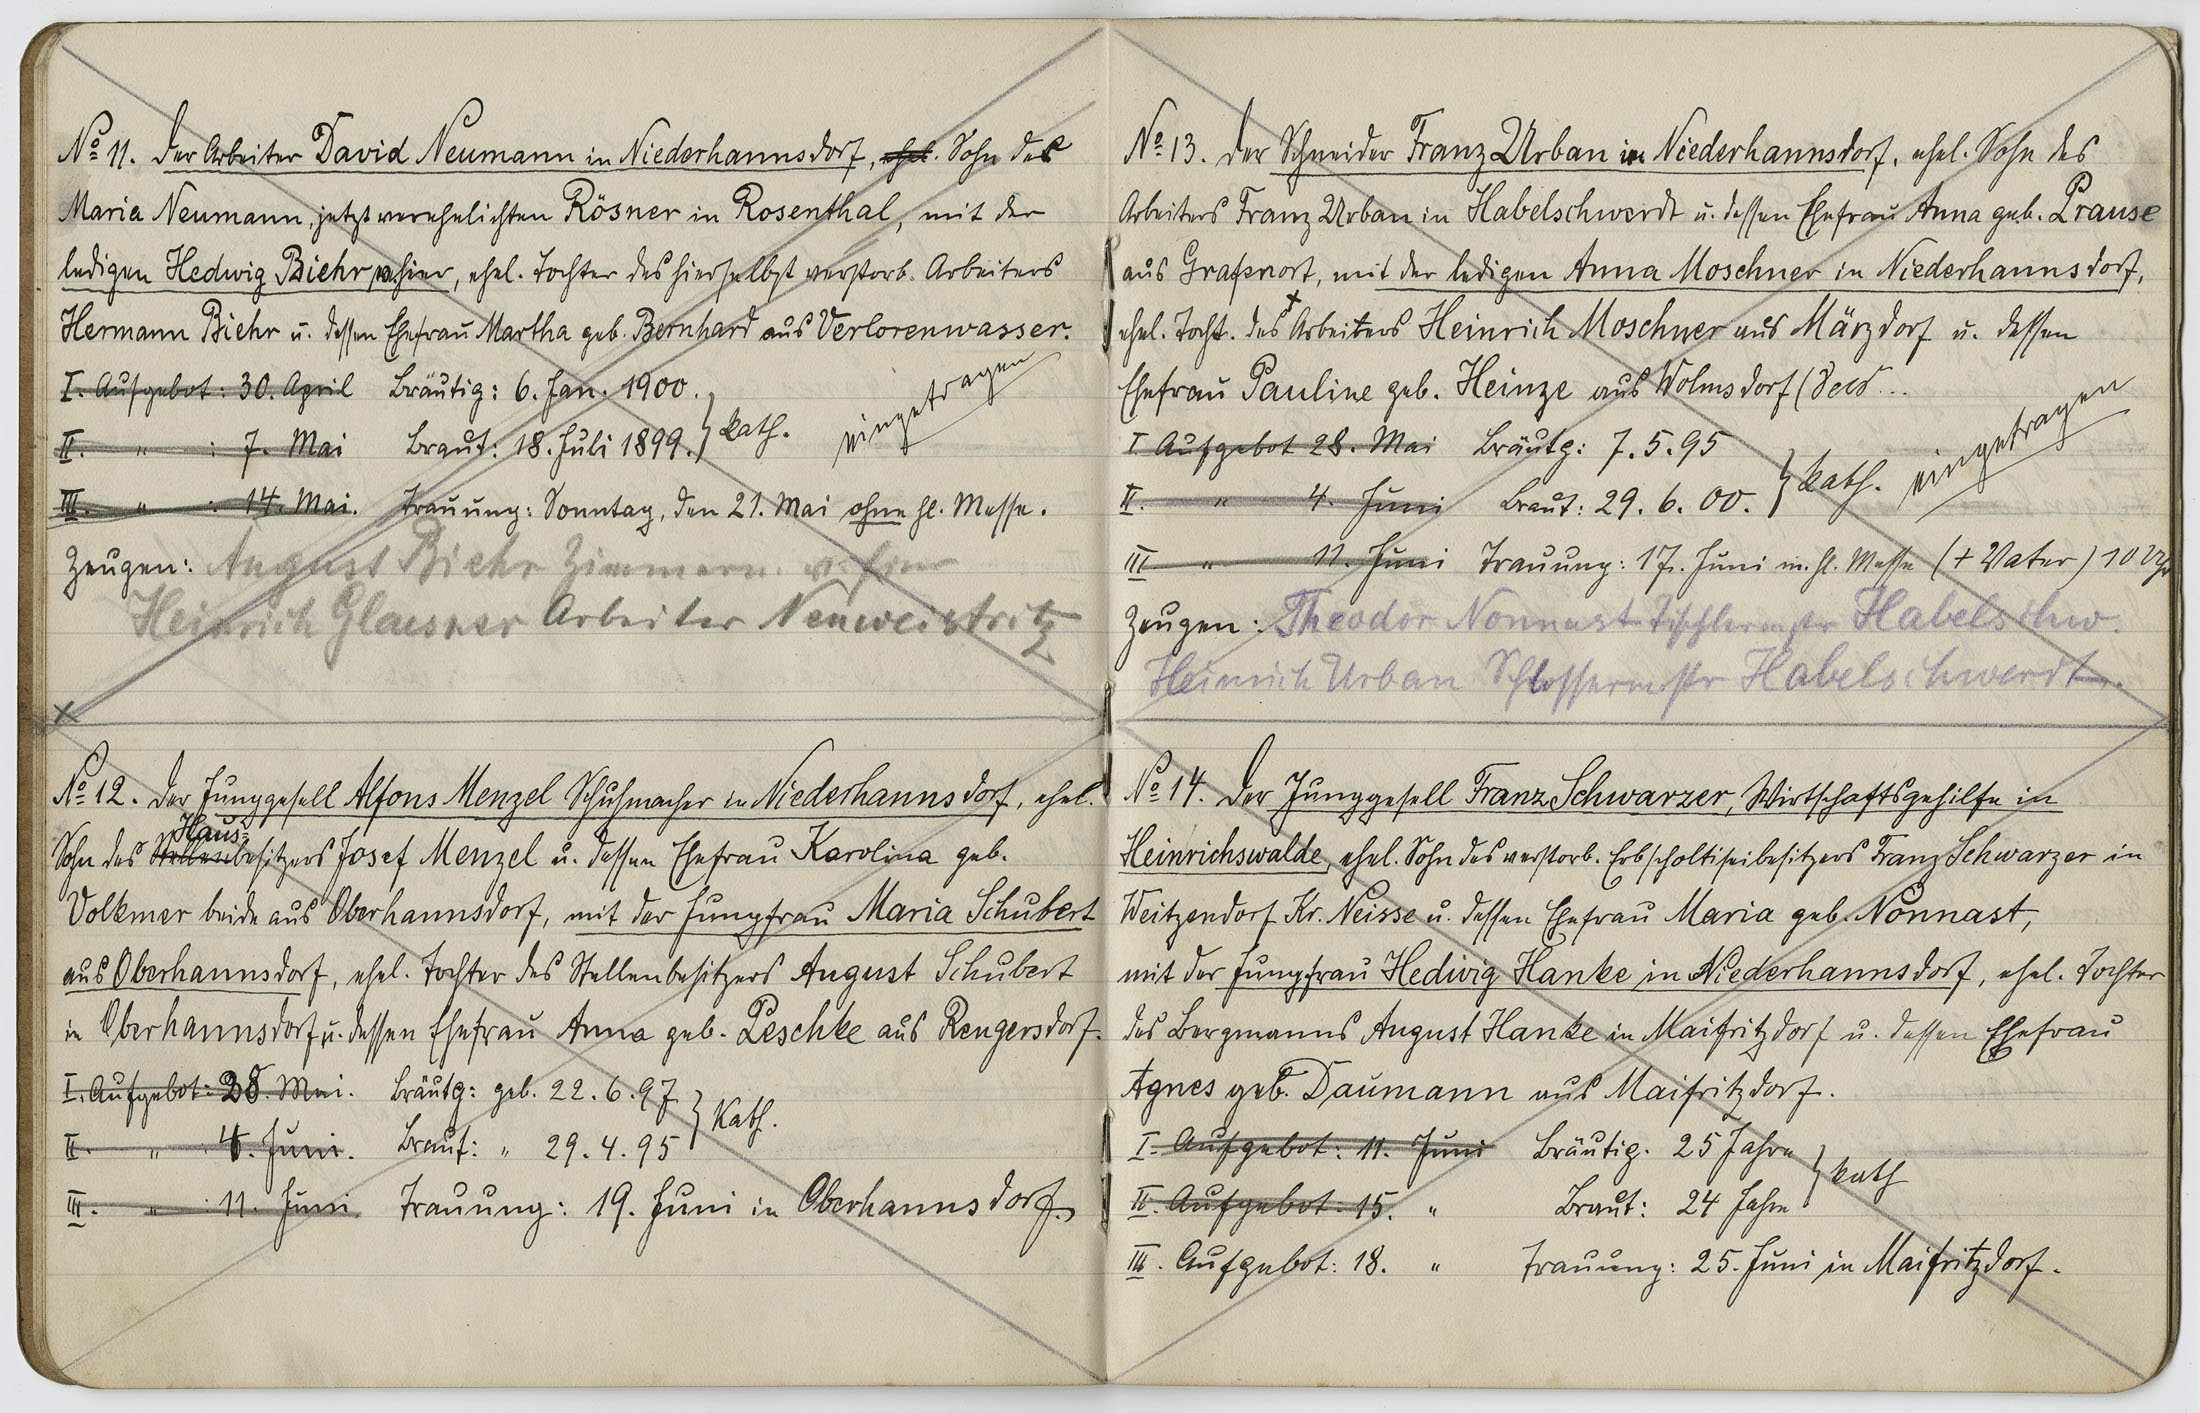 No 11. Der Arbeiter David Neumann in Niederhannsdorf, ehel. Sohn des
Maria Neumann, jetzt verehelichten Rösner in Rosenthal, mit der
ledigen Hedwig Biehr v. hier, ehel. Tochter des hierselbst verstorb. Arbeiters
Hermann Biehr u. dessen Ehefrau Martha geb. Bernhard aus Verlorenwasser.
I. Aufgebot: 30. April Bräutig: 6. Jan. 1900.
II. " : 7. Mai Braut: 18. Juli 1899. } kath. eingetragen
III. " : 14. Mai. Trauung: Sonntag, den 21. Mai ohne hl. Messe.
Zeugen: August Biehr Zimmerm. v. hier
Heinrich Glaesner Arbeiter Neuweistritz
No 12. Der Junggesell Alfons Menzel Schuhmacher in Niederhannsdorf, ehel.
Haus-
Sohn des Stellenbesitzers Josef Menzel u. dessen Ehefrau Karolina geb.
Volkmer beide aus Oberhannsdorf, mit der Jungfrau Maria Schubert
aus Oberhannsdorf, ehel. Tochter des Stellenbesitzers August Schubert
in Oberhannsdorf u. dessen Ehefrau Anna geb. Peschke aus Rengersdorf.
I. Aufgebot: 28. Mai. Bräutg: geb. 22. 6. 97
II. " : 4. Juni. Braut: " 29. 4. 95 } Kath.
III. " : 11. Juni Trauung: 19. Juni in Oberhannsdorf.
No 13. Der Schneider Franz Urban in Niederhannsdorf, ehel. Sohn des
Arbeiters Franz Urban in Habelschwerdt u. dessen Ehefrau Anna geb. Prause
aus Grafenort, mit der ledigen Anna Moschner in Niederhannsdorf,
ehel. Tocht. des + Arbeiters Heinrich Moschner aus Märzdorf u. dessen
Ehefrau Pauline geb. Heinze aus Wolmsdorf
I. Aufgebot 28. Mai Bräutg: 7. 5. 95
II. " 4. Juni Braut: 29. 6. 00. } kath. eingetragen
III " 11. Juni Trauung: 17. Juni m. hl. Messe (+ Vater) 10 Uhr
Zeugen: Theodor Nonnast Tischlermstr Habelschw.
Heinrich Urban Schlossermstr Habelschwerdt.
No 14. Der Junggesell Franz Schwarzer, Wirtschaftsgehilfe in
Heinrichswalde, ehel. Sohn des verstorb. Erbscholtiseibesitzers Franz Schwarzer in
Weitzendorf Kr. Neisse u. dessen Ehefrau Maria geb. Nonnast,
mit der Jungfrau Hedwig Hanke in Niederhannsdorf, ehel. Tochter
des Bergmanns August Hanke in Maifritzdorf u. dessen Ehefrau
Agnes geb. Daumann aus Maifritzdorf.
I. Aufgebot: 11. Juni Bräutig. 25 Jahre
II. Aufgebot: 15. " Braut: 24 Jahre } kath
III. Aufgebot: 18. " Trauung: 25. Juni in Maifritzdorf.